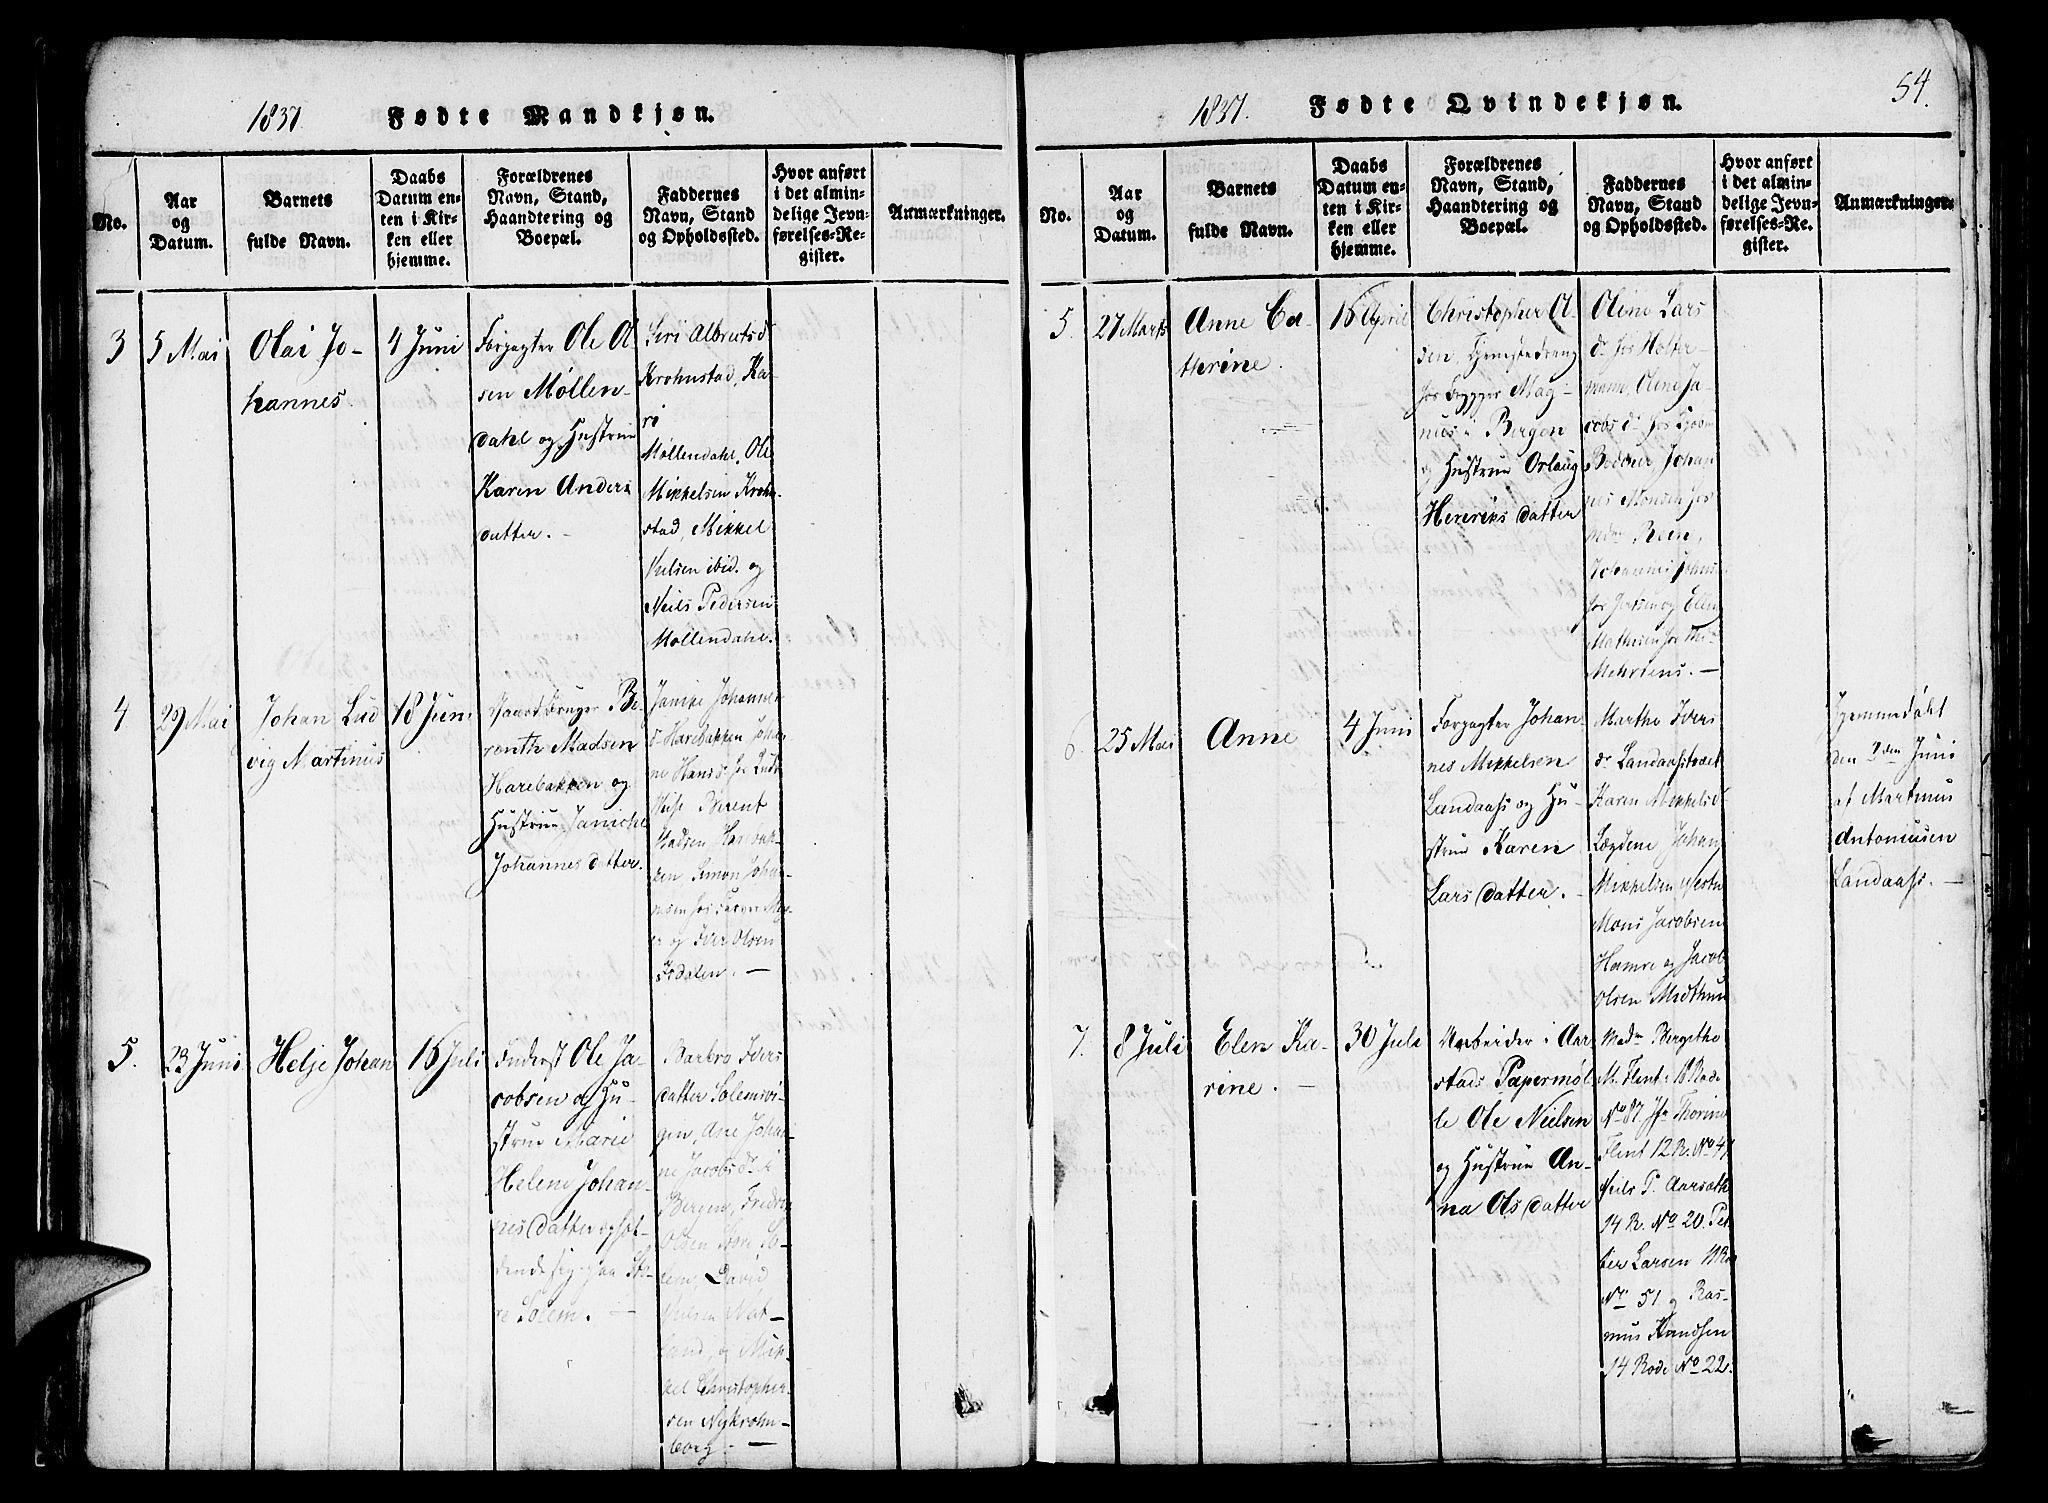 1837. Fødte Mandkjøn.
No.
Aar
og
Datum.
Barnets
fulde Navn.
Daabs
Datum en-
ten i Kir-
ken eller
hjemme.
Forældrenes
Navn, Stand,
Haandtering og
Boepæl.
Faddernes
Navn, Stand
og Opholdssted.
Hvor anført
i det almin-
delige Jevn-
førelses-Re-
gister.
Anmærkninger.
3
5 Mai
Olai Jo-
hannes.
4 Juni
Forpagter Ole Ol
sen Møllen-
dahl og Hustrue
Karen Anders
datter. -
Siri Albretsd
Krohnstad, Ka-
ri
Møllendahl, Ole
Mikkelsen Krohn-
stad, Mikkel
Nielsen ibid. og
Neils Pedersen
Møllendahl.
4
29 Mai
Johan Lud
vig Martinus
18 Juni
Be-
renth Madsen
Harebakken og
Hustrue Janiche
Johannesdatter.
Janike Johannes
d. Harebakken Johan-
ne Hansd. for
Berent
Madsen Harebak-
ken Simon Johan-
nesen
og Iver Olsen
Isdalen. -
5.
23 Juni
Helje Johan
16 Juli
Inderst Ole Ja-
cobsen og Hu-
strue Marie
Helene Johan-
nesdatter ophol-
dende sig paa St-
re Solem. -
Barbro Ivers
datter Solemsvi-
gen, Ane Johan-
ne Jacobsdr i
Bergen, Fredrik
Olsen Store So-
lem, David
Nielsen Nat-
land, og Mik-
kel Christopher-
sen Nykrohn-
borg. -
1837. Fødte Qvindekjøn.
54.
No.
Aar
og
Datum.
Barnets
fulde Navn.
Daabs
Datum en-
ten i Kir-
ken eller
hjemme.
Forældrenes
Navn, Stand,
Haandtering og
Boepæl.
Faddernes
Navn, Stand
og Opholdssted.
Hvor anført
i det almin-
delige Jevn-
førelses-Re-
gister.
Anmærkninger.
5.
27 Marts
Anne Ca-
therine.
16 April
Christopher Ol-
sen, Tjenestedreng
hos Brygger Mag-
nus i Bergen
og Hustrue Orlaug
Henriks datter
Oline Lars
dr hos Holter-
mann, Oline Ja-
cobs dr hos
Bødker, Johan
nes Monsen hos
Mdm Rein,
Johannes Johans.
hos Jersen og Ellen
Mathisen hos
Mehrtens. -
6.
25 Mai
Anne
4 Juni
Forpagter Johan-
nes Mikkelsen
Landaass og Hu-
strue Karen
Lars datter. -
Marthe Ivers
dr Landaasstræet
Karen Mikkelsd
Lægdene Johan
Mikkelsen
Mons Jacobsen
Hamre og Jacob
Olsen Midthun
Hjemmedøbt
den 1den Juni
af Martinus
Antoniusen
Landaass. -
7.
8 Juli
Elen Ka-
rine. -
30 Juli
Arbeider i Aar-
stads Papermøl-
le Ole Nielsen
og Hustrue An-
na Olsdatter
Madm Bergithe
M. Flent 18 Rode
No 87 Jfr Thorine
Flent 12 R. No 47
Niels P. Aarsæth
14 R. No 20. Pet-
ter Larsen 11 Ro
No 51 og Ras-
mus Knudsen
14 Rode No 22.